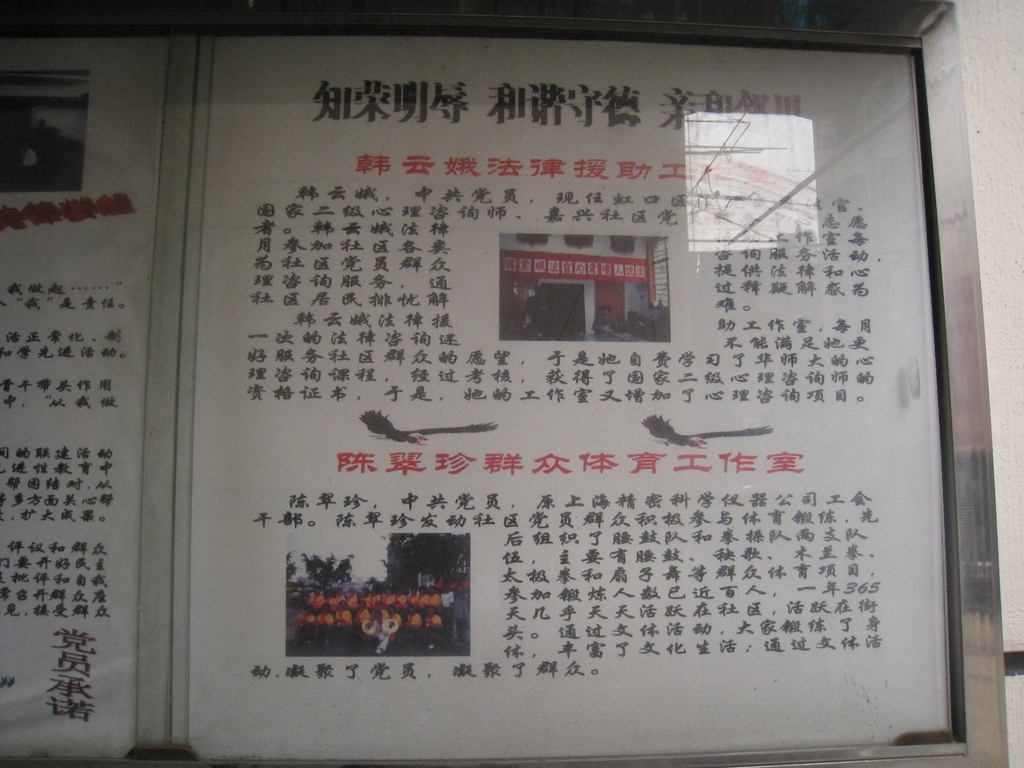 知荣明辱 和谐守德 亲和邻里
韩云娥法律援助工
韩云娥，中共党员，现任虹口区
官、
国家二级心理咨询师、嘉兴社区党
志愿
者。韩云娥法律
工作室每
月参加社区各类
咨询服务活动，
为社区党员群众
提供法律和心
理咨询服务，通
过释疑解惑为
社区居民排忧解
难。
韩云娥法律援
助工作室，每月
一次的法律咨询还
不能满足她更
好服务社区群众的愿望，于是她自费学习了华师大的心
理咨询课程，经过考核，获得了国家二级心理咨询师的
资格证书，于是，她的工作室又增加了心理咨询项目。
陈翠珍群众体育工作室
陈翠珍，中共党员，原上海精密科学仪器公司工会
干部。陈翠珍发动社区党员群众积极参与体育锻练，先
后组织了腰鼓队和拳操队两支队
伍，主要有腰鼓、秧歌、木兰拳、
太极拳和扇子舞等群众体育项目，
参加锻炼人数已近百人，一年365
天几乎天天活跃在社区，活跃在街
头。通过文体活动，大家锻练了身
体，丰富了文化生活；通过文体活
动，凝聚了党员，凝聚了群众。
我做起……”
“我”是责任。
活正常化、制
和学先进活动。
骨干带头作用
中，“从我做
间的联建活动
先进性教育中
帮困结对，从
等多方面关心帮
，扩大成果。
评议和群众
们要开好民主
批评和自我
常召开群众座
见，接受群众
党员承诺